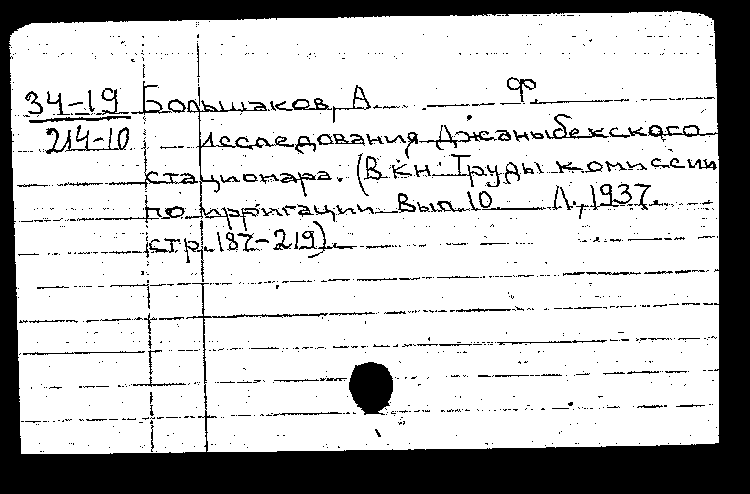 34-19 Большаков, А. Ф.
214-10 Исследования Джаныбекского
стационара. (В кн: Труды комиссии
по ирригации Вып. 10 Л., 1937.
стр. 187-219).